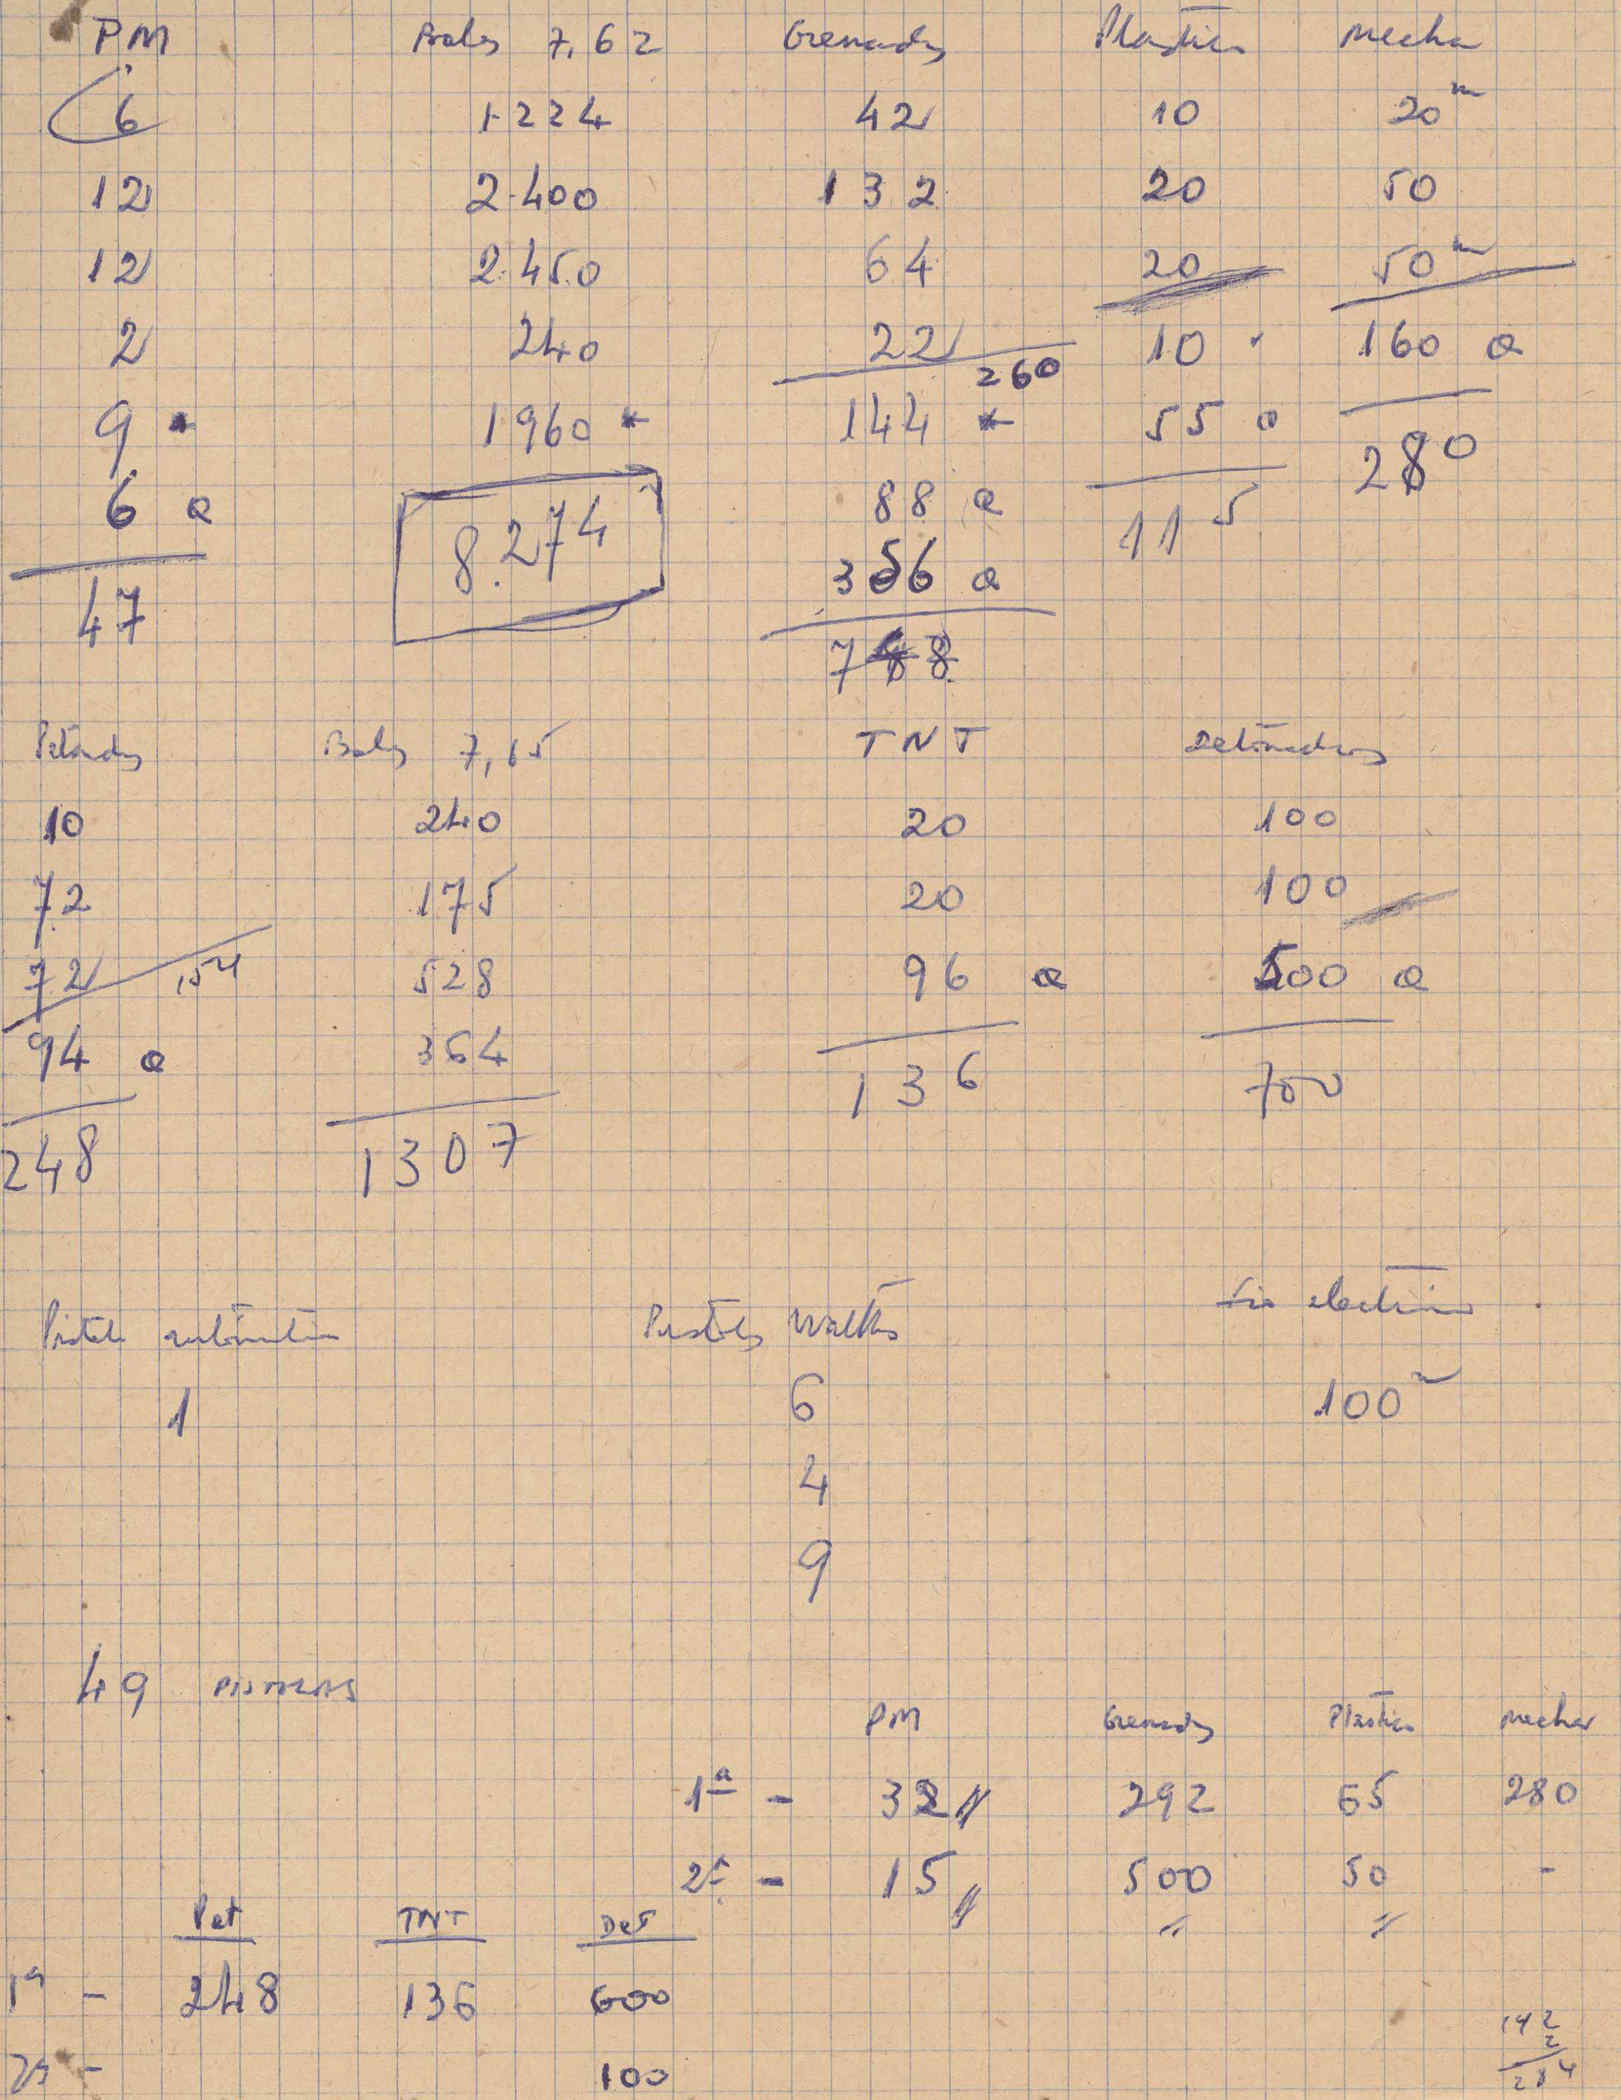 PM Balas 7,62 Grenades Plastico Mecha
6 1.224 42 10 20 m
12 2.400 132 20 50
12 2.450 64 20 50 m
2 240 22 10 160 a
260
9 * 1960 * 144 * 55 a 280
6 a 8.274 88 a 115
47 356 a
748
Petardos Balas 7,65 TNT Detonadores
10 240 20 100
72 175 20 100
72 154 528 96 a 500 a
94 a 364 136 700
248 1307
Pistola automatica Pistolas Walther electrico
1 6 100 m
4
9
49 PISTOLAS
PM Grenades Plastico Mecha
1ª - 32 292 65 280
2ª - 15 500 50 -
" "
Pet TNT Det
1ª - 248 136 600
2ª - 100
142
2
284